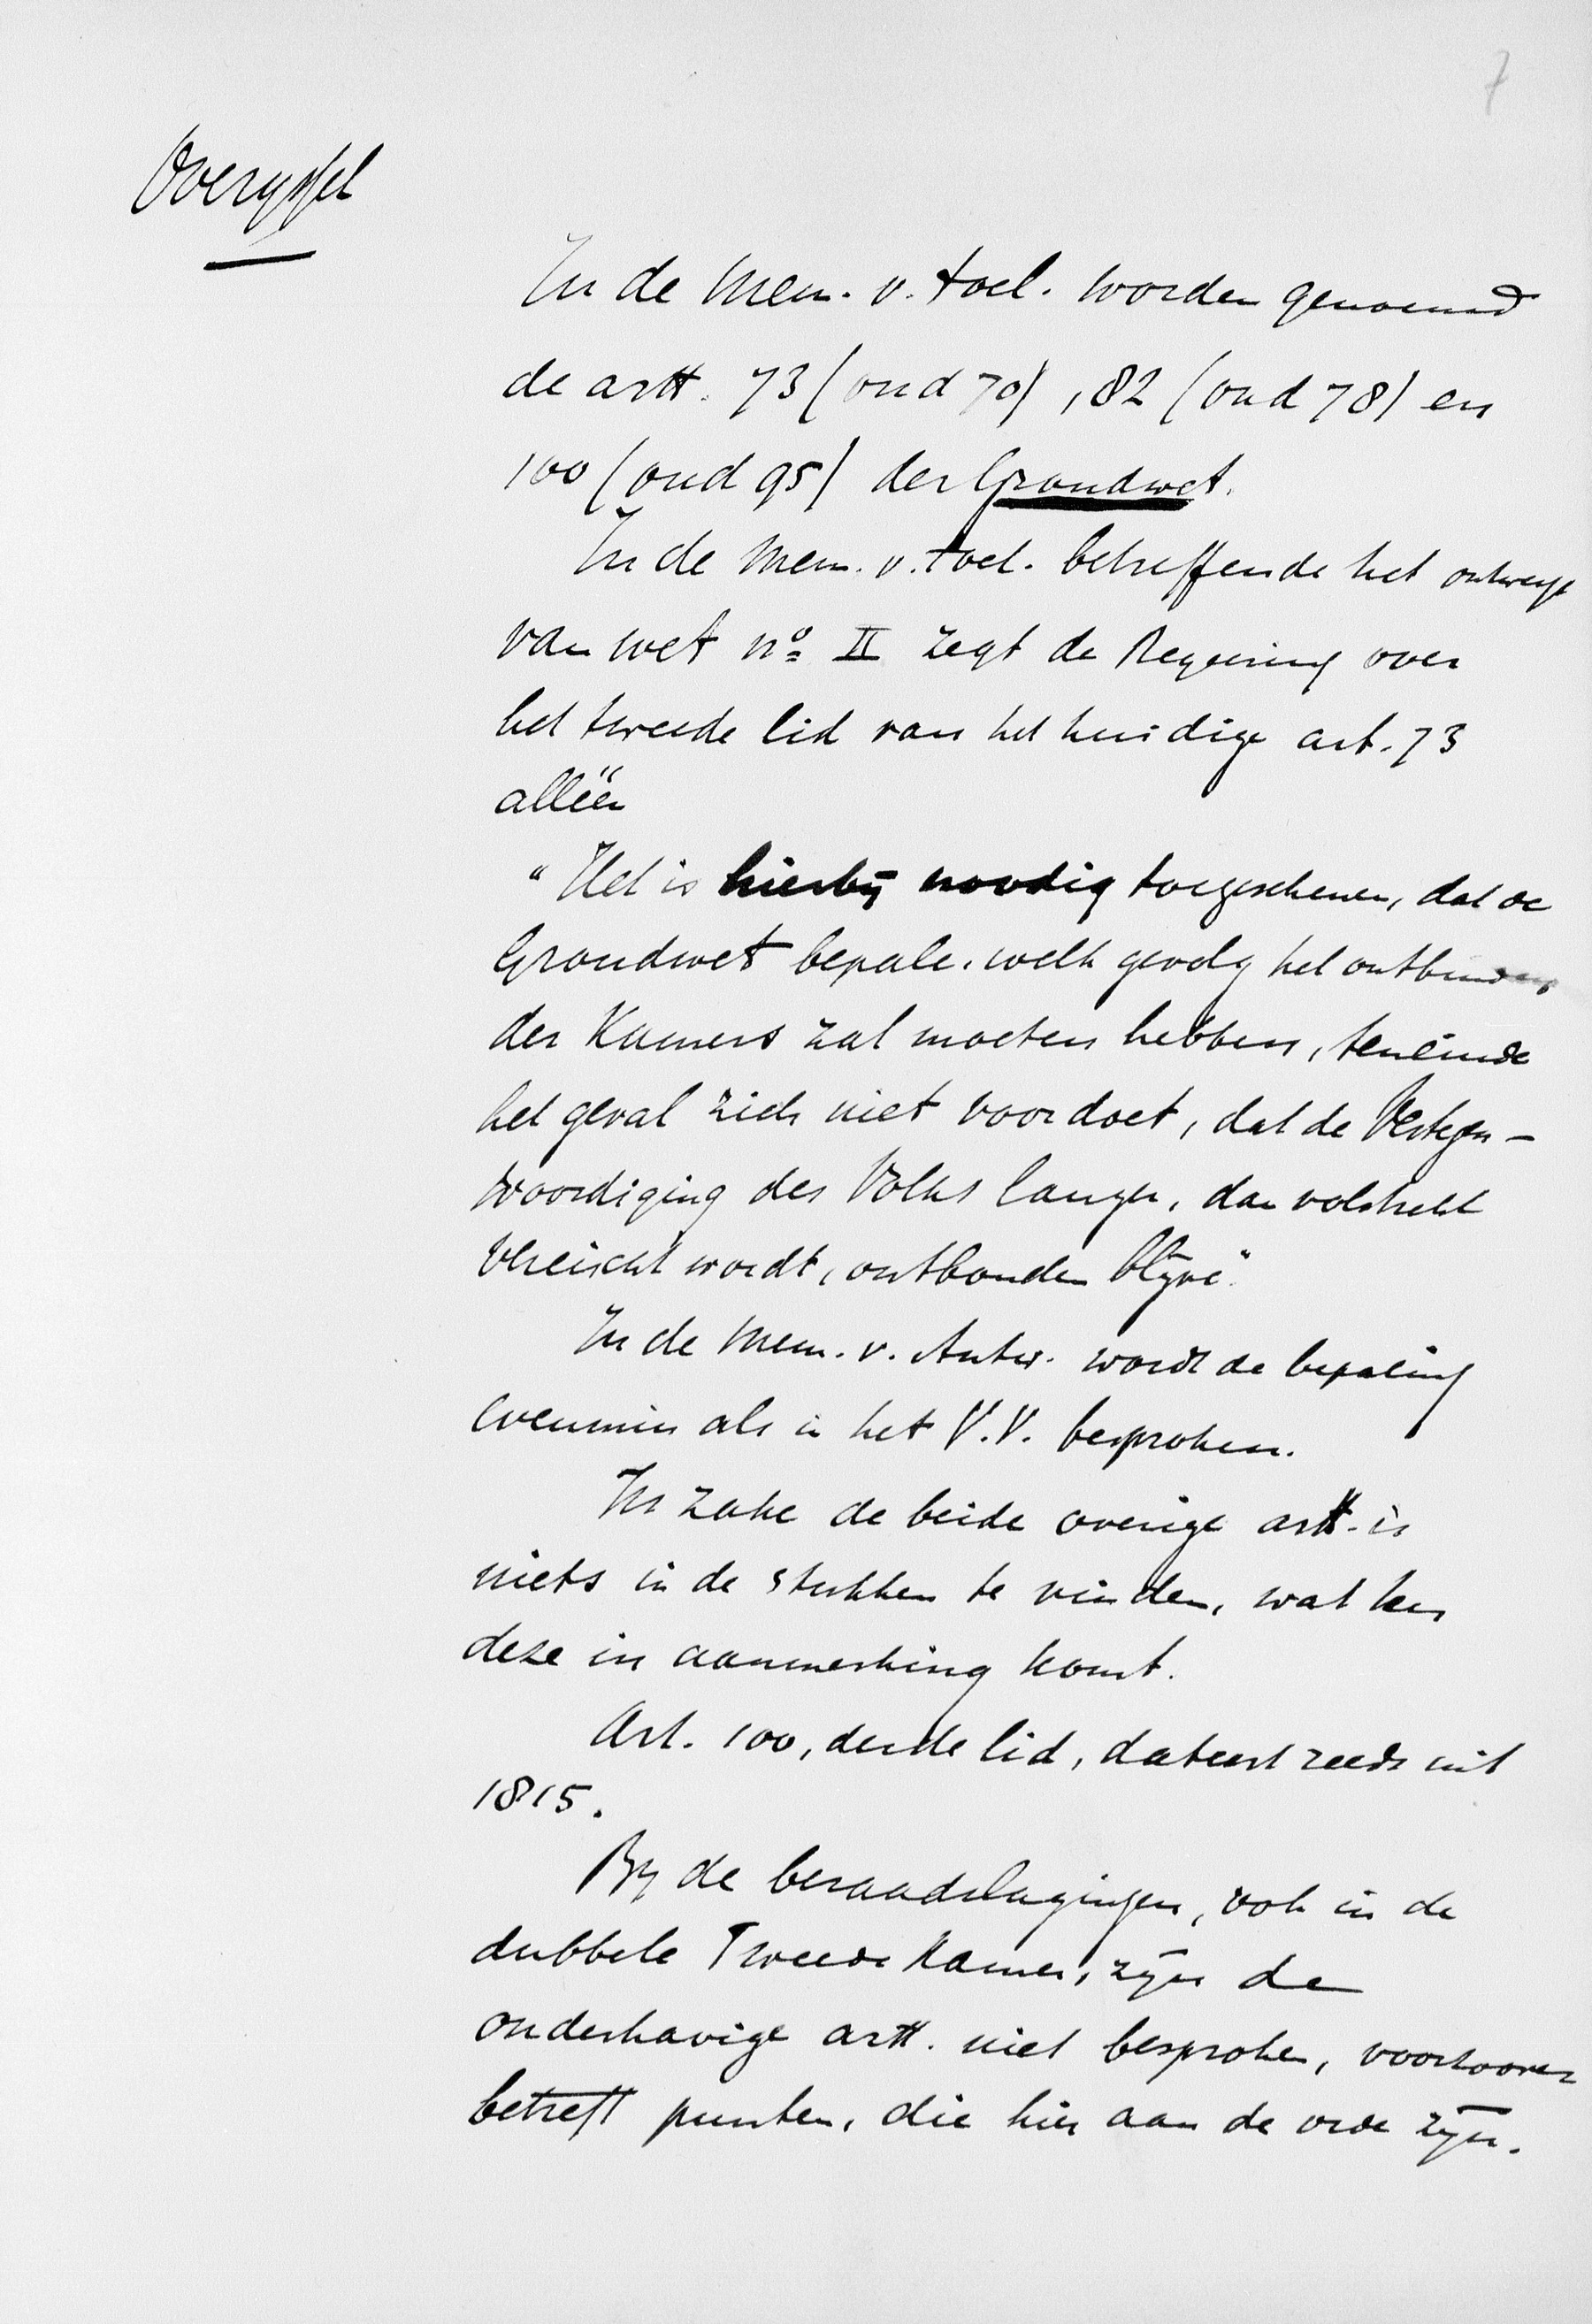 7
Overijssel
In de Mem. v. toel. worden genoemd
de artt. 73 (oud 70), 82 (oud 78) en
100 (oud 95) der Grondwet.
In de Mem. v. toel. betreffende het ontwerp
van wet nº II zegt de Regeering over
het tweede lid van het huidige art. 73
alléén
"Het is hierbij noodig toegeschenen, dat de
Grondwet bepale, welk gevolg het ontbinden
der Kamers zal moeten hebben, teneinde
het geval zich niet voordoet, dat de Vertegen-
woordiging des Volks langer, dan volstrekt
vereischt wordt, ontbonden blijve".
In de Mem. v. Antw. wordt de bepaling
evenmin als in het V.V. besproken.
In zake de beide overige artt. is
niets in de stukken te vinden, wat ten
deze in aanmerking komt.
Art. 100, derde lid, dateert reeds uit
1815.
Bij de beraadslagingen, ook in de
dubbele Tweede Kamer, zijn de
onderhavige artt. niet besproken, voorzoover
betreft punten, die hier aan de orde zijn.